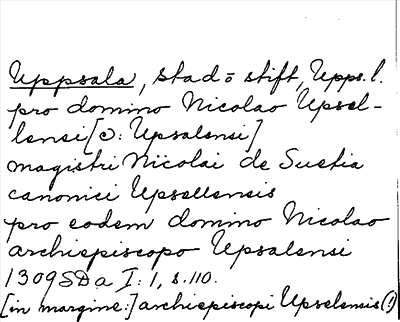 Uppsala, stad o stift, Upps. l.
pro domino Nicolao Upsel-
lensi [ɔ: Upsalensi]
magistri Nicolai de Suetia
canonici Upsellensis
pro eodem domino Nicolao
archiepiscopo Upsalensi
1309 SD a I: 1, s. 110.
[in margine:] archiepiscopi Upselensis (!)